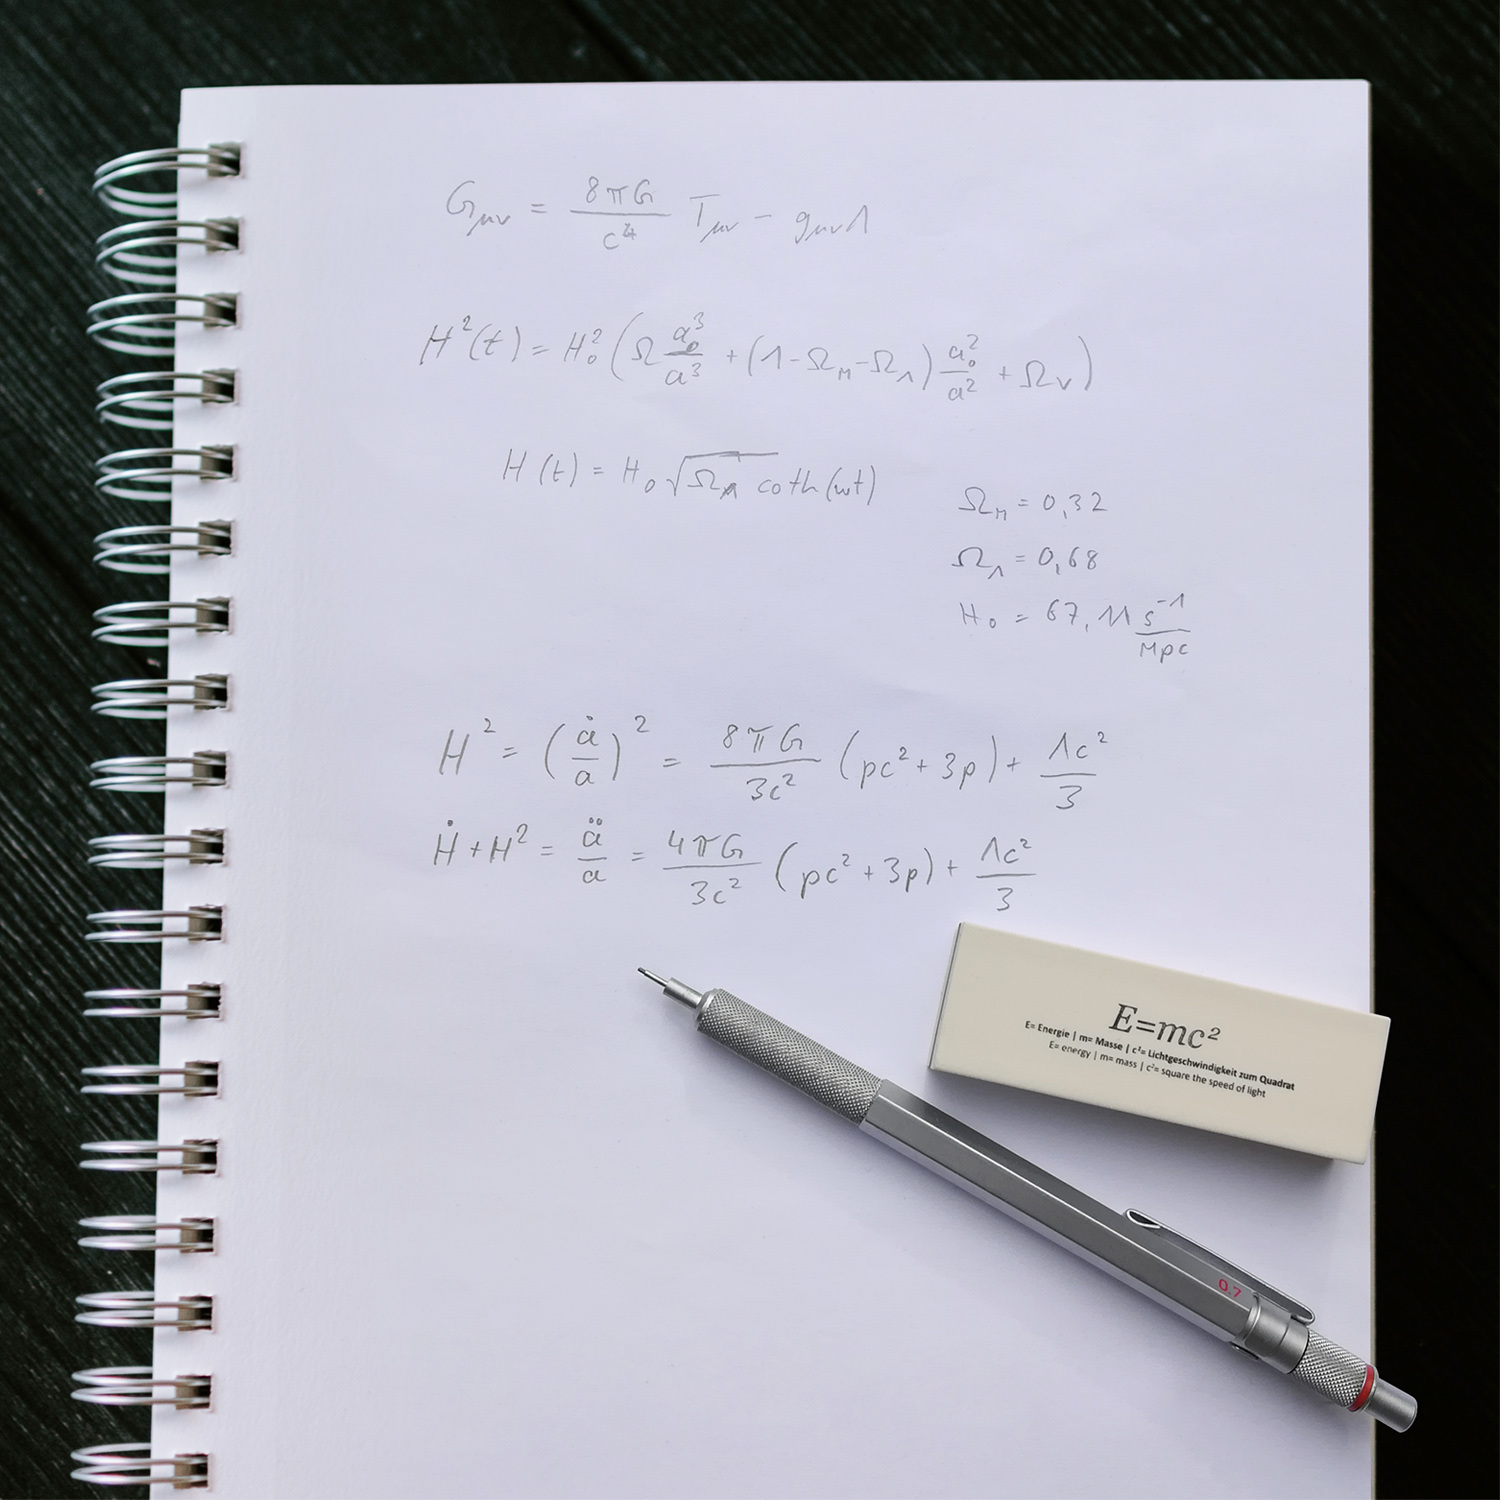 Gμν = 8πG/c⁴ Tμν − gμνΛ
H²(t) = H₀² (Ω a₀³/a³ + (1 − Ω_M − Ω_Λ) a₀²/a² + Ω_V)
H(t) = H₀ √Ω_Λ coth(wt)
Ω_M = 0,32
Ω_Λ = 0,68
H₀ = 67,11 s⁻¹/Mpc
H² = (ȧ/a)² = 8πG/3c² (pc² + 3p) + Λc²/3
Ḣ + H² = ä/a = 4πG/3c² (pc² + 3p) + Λc²/3
E=mc²
E= Energie | m= Masse | c²= Lichtgeschwindigkeit zum Quadrat
E= energy | m= mass | c²= square the speed of light
0.7